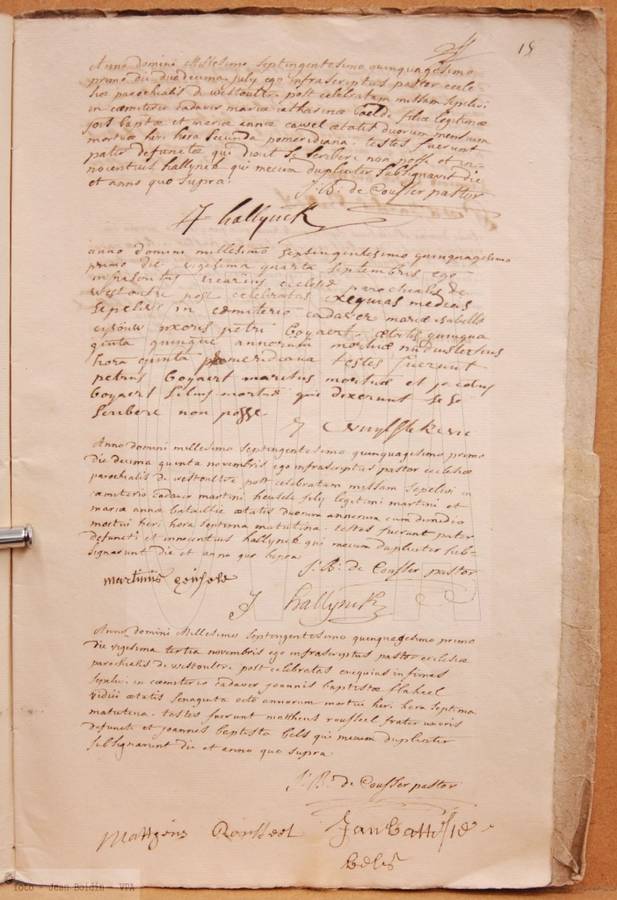 15
Anno domini Millesimo septingentesimo quinquagesimo
primo die duodecima july ego infrascriptus pastor eccle
siæ parochialis de westoutre post celebratam missam sepelivi
in cœmiterio cadaver mariæ catharinæ baelde filiæ legitimæ
jois baptæ et mariæ annæ cauwel ætatis duorum mensium
mortuæ heri hora secunda pomeridiana. testes fuerunt
pater defunctæ qui dixit se scribere non posse et in=
nocentius hallynck qui mecum dupliciter subsignavit die
et anno quo supra.
J. B. de Cousser pastor
J hallynck
anno domini millesimo septingentesimo quinquagesimo
primo die vigesima quarta septembris ego
infrascritus vicarius ecclesiæ parochialis de
westoutre post celebratas exequias medias
sepelivi in cœmiterio cadaver mariæ isabellæ
uxoris petri Goyaert ætatis quinqua
ginta quinque annorum mortuæ nudiustertius
hora quinta pomeridiana testes fuerunt
petrus Goyaert maritus mortuæ et jacobus
Goyaert filius mortuæ qui dixerunt sese
scribere non posse
Anno domini millesimo septingentesimo quinquagesimo primo
die decima quinta novembris ego infrascriptus pastor ecclesiæ
parochialis de westoutre post celebratam missam sepelivi in
cœmiterio cadaver martini heusele filij legitimi martini et
mariæ annæ bataillie ætatis duorum annorum cum dimidio
mortui heri hora septima matutina. testes fuerunt pater
defuncti et innocentius hallynck qui mecum dupliciter sub=
signarunt die et anno quo supra
J. B. de Cousser pastor
martinus
J hallynck
Anno domini Millesimo septingentesimo quinquagesimo primo
die vigesima tertia novembris ego infrascriptus pastor ecclesiæ
parochialis de westoutre post celebratas exequias infimas
sepelivi in cœmiterio cadaver joannis baptistæ flaheel
vidui ætatis sexaginta octo annorum mortui heri hora septima
matutina. testes fuerunt mattheus roussel frater uxoris
defuncti et joannes baptista bels qui mecum dupliciter
subsignarunt die et anno quo supra.
J. B. de Cousser pastor
Mattheus Rousseel Jan battiste
bels
foto - Jean Boidin - VPA